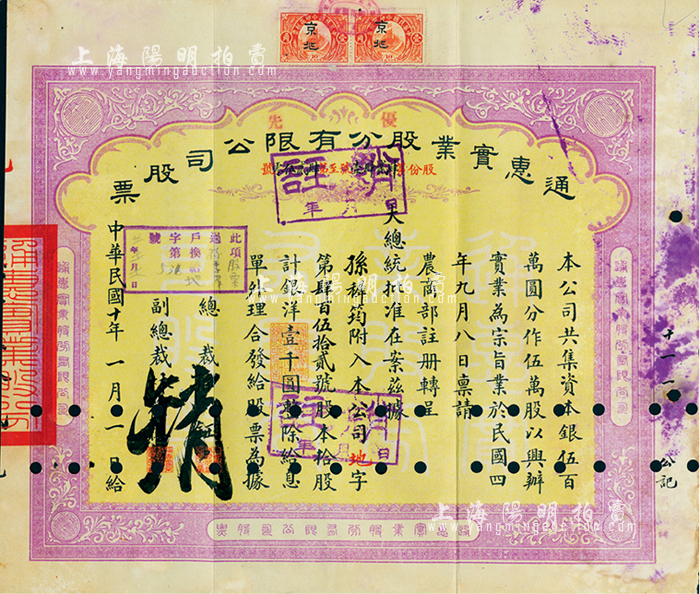 上海陽明拍賣
www.yangmingauction.com
京兆
京兆
優先
通惠實業股分有限公司股票
註銷
年 月 日
本公司共集資本銀伍百
萬圓分作伍萬股以興辦
實業為宗旨業於民國四
年九月八日禀請
農商部註册轉呈
大總統批准在案茲據
孫 筠附入本公司地字
第肆百伍拾貳號股本拾股
計銀洋壹千圓整除給息
單外理合發給股票為據
總裁
副總裁
中華民國十年一月一日給
此項股票
過
戶換給
字第
號
年 月 日
註銷
年 月 日
銷
公記
通惠實業股份有限公司股票
上海陽明拍賣
www.yangmingauction.com